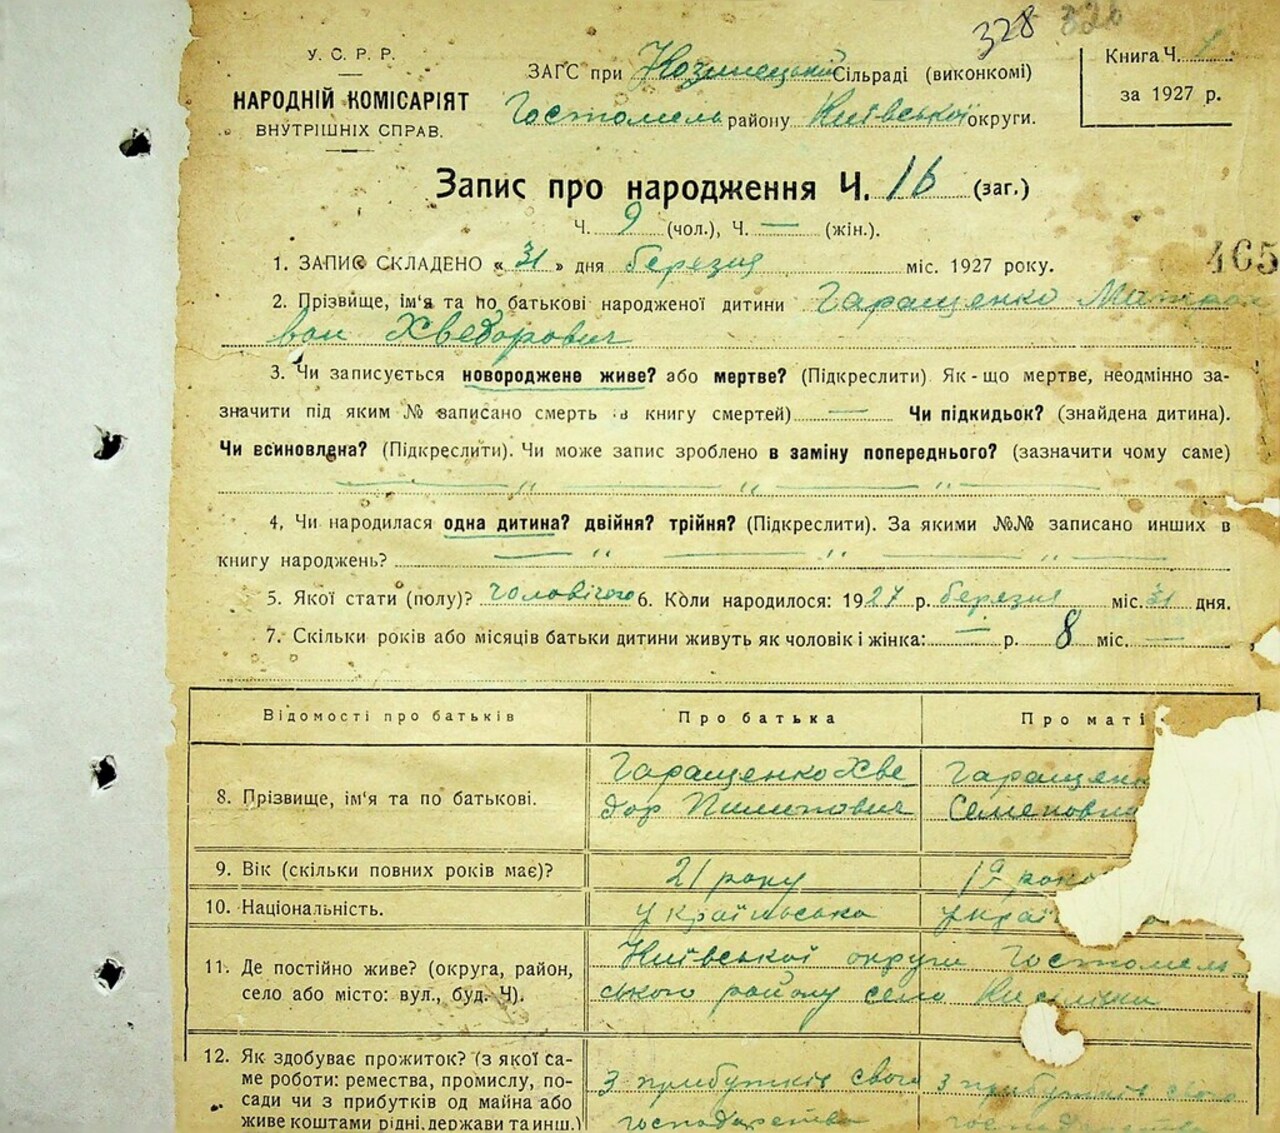 328 328
У. С. Р. Р.
НАРОДНІЙ КОМІСАРІЯТ
ВНУТРІШНІХ СПРАВ.
ЗАГС при Козинецькій Сільраді (виконкомі)
Гостомель району Київської округи.
Книга Ч. 1
за 1927 р.
Запис про народження Ч. 16 (заг.)
Ч. 9 (чол.), Ч. — (жін.).
465
1. ЗАПИС СКЛАДЕНО « 31 » дня березня міс. 1927 року.
2. Прізвище, ім'я та по батькові народженої дитини Гаращенко
Хведорович
3. Чи записується новороджене живе? або мертве? (Підкреслити) Як-що мертве, неодмінно за-
значити під яким № записано смерть в книгу смертей) — Чи підкидьок? (знайдена дитина).
Чи всиновлена? (Підкреслити). Чи може запис зроблено в заміну попереднього? (зазначити чому саме)
— „ — „ — „ —
4, Чи народилася одна дитина? двійня? трійня? (Підкреслити). За якими №№ записано инших в
книгу народжень? — „ — „ — „ —
5. Якої стати (полу)? чоловічого 6. Коли народилося: 1927 р. березня міс. 31 дня.
7. Скільки років або місяців батьки дитини живуть як чоловік і жінка: — р. 8 міс. —
Відомості про батьків Про батька Про маті
8. Прізвище, ім'я та по батькові. Гаращенко Хве
дор Пилипович Гаращенк
Семеновна
9. Вік (скільки повних років має)? 21 року 19 року
10. Національність. українська украї
11. Де постійно живе? (округа, район,
село або місто: вул., буд. Ч). Київської округи Гостомель-
ського району село
12. Як здобуває прожиток? (з якої са-
ме роботи: ремества, промислу, по-
сади чи з прибутків од майна або
живе коштами рідні, держави та инш.) З прибутків свого
господарства З прибутків свого
господарства